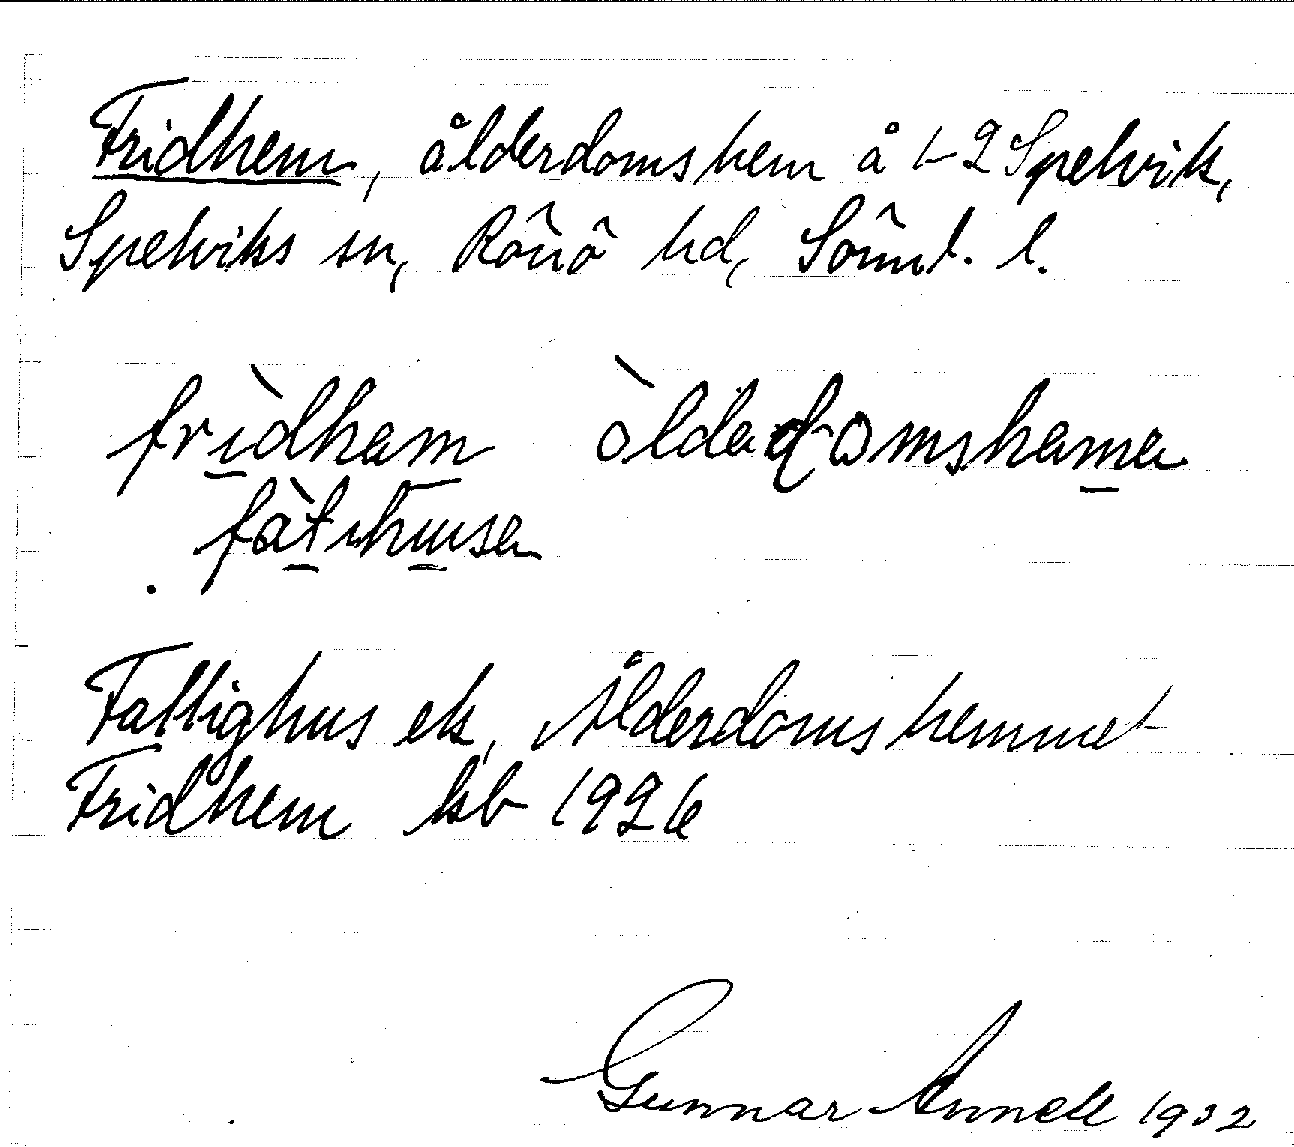 Fridhem, ålderdomshem å 1-2 Spelvik,
Spelviks sn, Rönö hd, Sörml. l.
frìdham òldadomshema
fàtihusa
Fattighus ek, Ålderdomshemmet
Fridhem kb 1926
Gunnar Annell 1932